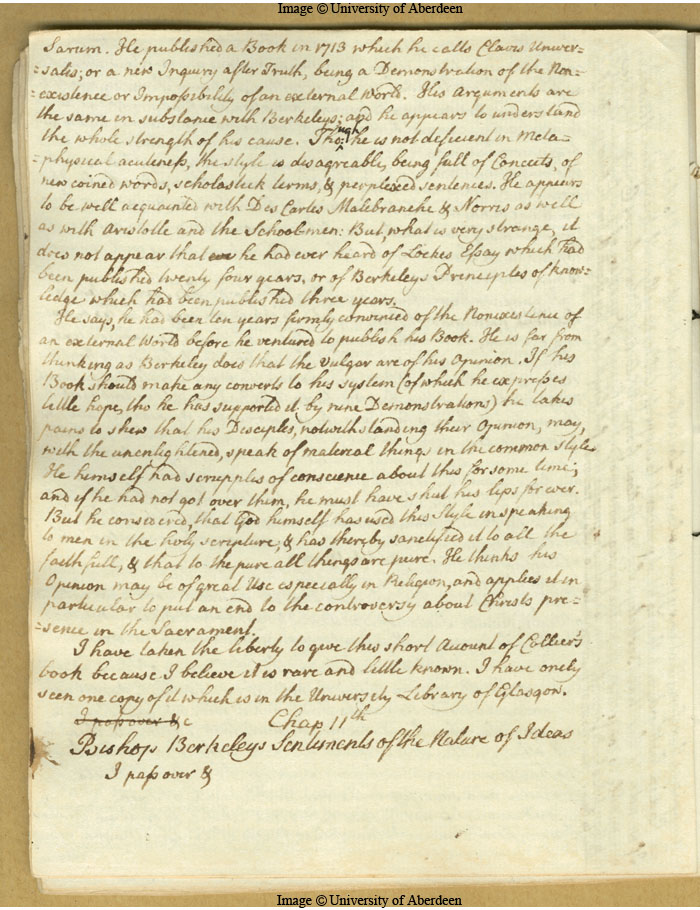 Image © University of Aberdeen
Sarum. He published a Book in 1713 which he calls Clavis Univer-
=salis; or a new Inquiry after Truth, being a Demonstration of the Non=
=existence or Impossibility of an external World. His Arguments are
the same in substance with Berkeleys; and he appears to understand
the whole strength of his cause. Though he is not deficient in Meta=
=physical acuteness, the style is disagreable, being full of Conceits, of
new coined words, scholastick terms, & perplexed sentences. He appears
to be well acquainted with Des Cartes Malebranche & Norris as well
as with Aristotle and the Schoolmen: But, what is very strange, it
does not appear that he had ever heard of Lockes Essay which had
been published twenty four years, or of Berkeleys Principles of Know=
ledge which had been published three years.
He says, he had been ten years firmly convinced of the Nonexistence of
an external World before he ventured to publish his Book. He is far from
thinking as Berkeley does that the vulgar are of his Opinion. If his
Book should make any converts to his system (of which he expresses
little hope, tho he has supported it by nine Demonstrations) he takes
pains to shew that his Disciples, notwithstanding their Opinion, may,
with the unenlightened, speak of material things in the common style.
He himself had scruples of conscience about this for some time;
and if he had not got over them, he must have shut his lips for ever.
But he considered, that God himself has used this Style in speaking
to men in the holy scripture, & has thereby sanctified it to all the
faithfull, & that to the pure all things are pure. He thinks his
Opinion may be of great Use especially in Religion, and applies it in
particular to put an end to the controversy about Christs pre=
=sence in the Sacrament.
I have taken the liberty to give this short Account of Collier's
book because I believe it is rare and little known. I have only
seen one copy of it which is in the University Library of Glasgow.
I pass over &c Chap 11th
Bishop Berkeleys Sentiments of the Nature of Ideas
I pass over &
Image © University of Aberdeen